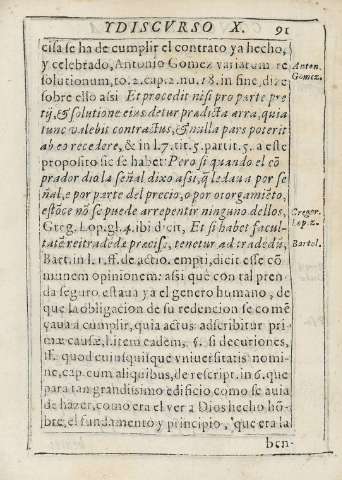 Y DISCVRSO X. 91
cisa se ha de cumplir el contrato ya hecho,
y celebrado, Antonio Gomez variarum re
solutionum, to. 2. cap. 2. nu. 18. in fine, dize
sobre ello assi Et procedit nisi pro parte pre
tij, & solutione eius detur prædicta arra, quia
tunc valebit contractus, & nulla pars poterit
ab eo recedere, & in l. 7. tit. 5. partit. 5. a este
proposito sic se habet: Pero si quando el cõ
prador dio la señal dixo assi, q̃ le daua por se
ñal, e por parte del precio, o por otorgamiẽto,
estõce nõ se puede arrepentir ninguno dellos,
Greg. Lop. gl. 4. ibi dicit, Et si habet facul-
tatẽ rei tradẽdæ precisa, tenetur ad tradẽdũ,
Bart. in l. 1. ff. de actio. empti, dicit esse cõ
munem opinionem: assi que con tal pren
da seguro estaua ya el genero humano, de
que la obligacion de su redencion se come
çaua a cumplir, quia actus adscribitur pri-
mæ causæ, l. item eadem, §. si decuriones,
ff. quod cuiusquisque vniuersitatis nomi-
ne, cap. cum aliquibus, de rescript. in 6. que
para tan grandissimo edificio como se auia
de hazer, como era el ver a Dios hecho hõ-
bre, el fundamento y principio, que era la
ben-
Anton.
Gomez.
Gregor.
Lopez.
Bartol.